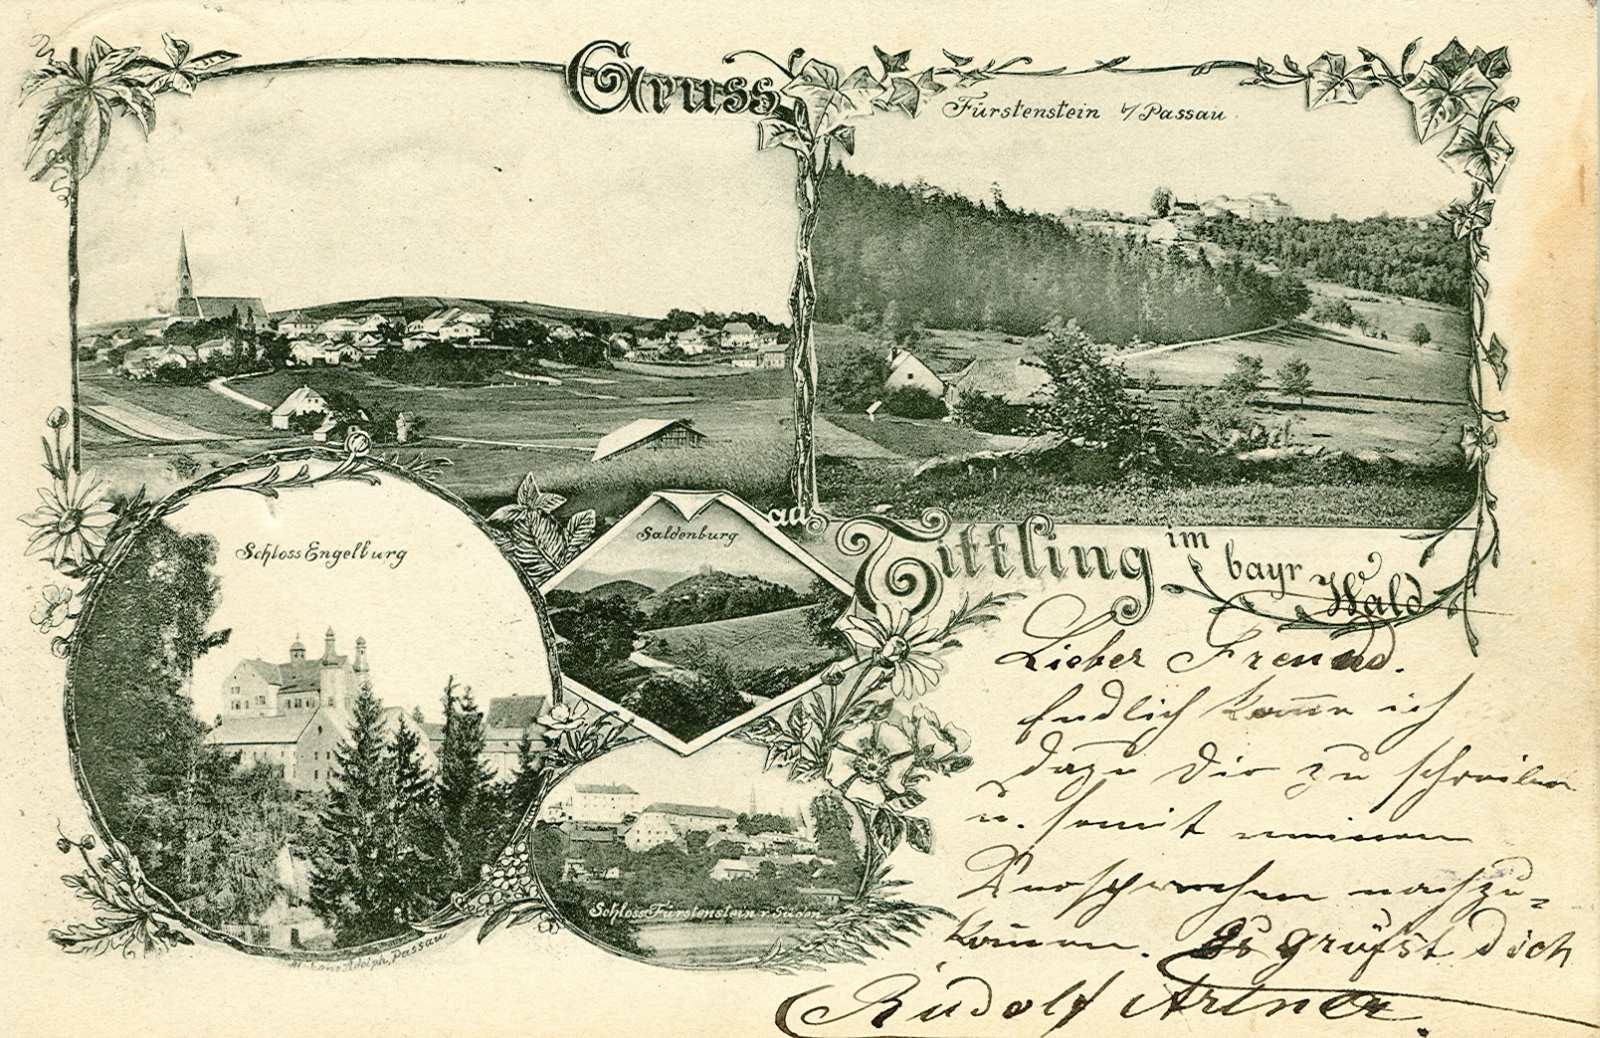 Gruss
Fürstenstein b/Passau.
aus
Tittling im
bayr
Wald
Saldenburg
Schloss Engelburg
Schloss Fürstenstein v. Süden
Adolph, Passau
Lieber Freund.
Endlich kom̅e ich
dazu Dir zu schreiben
u. somit meinem
Versprechen nachzu-
kom̅en. Es grüßt Dich
Rudolf Artner.